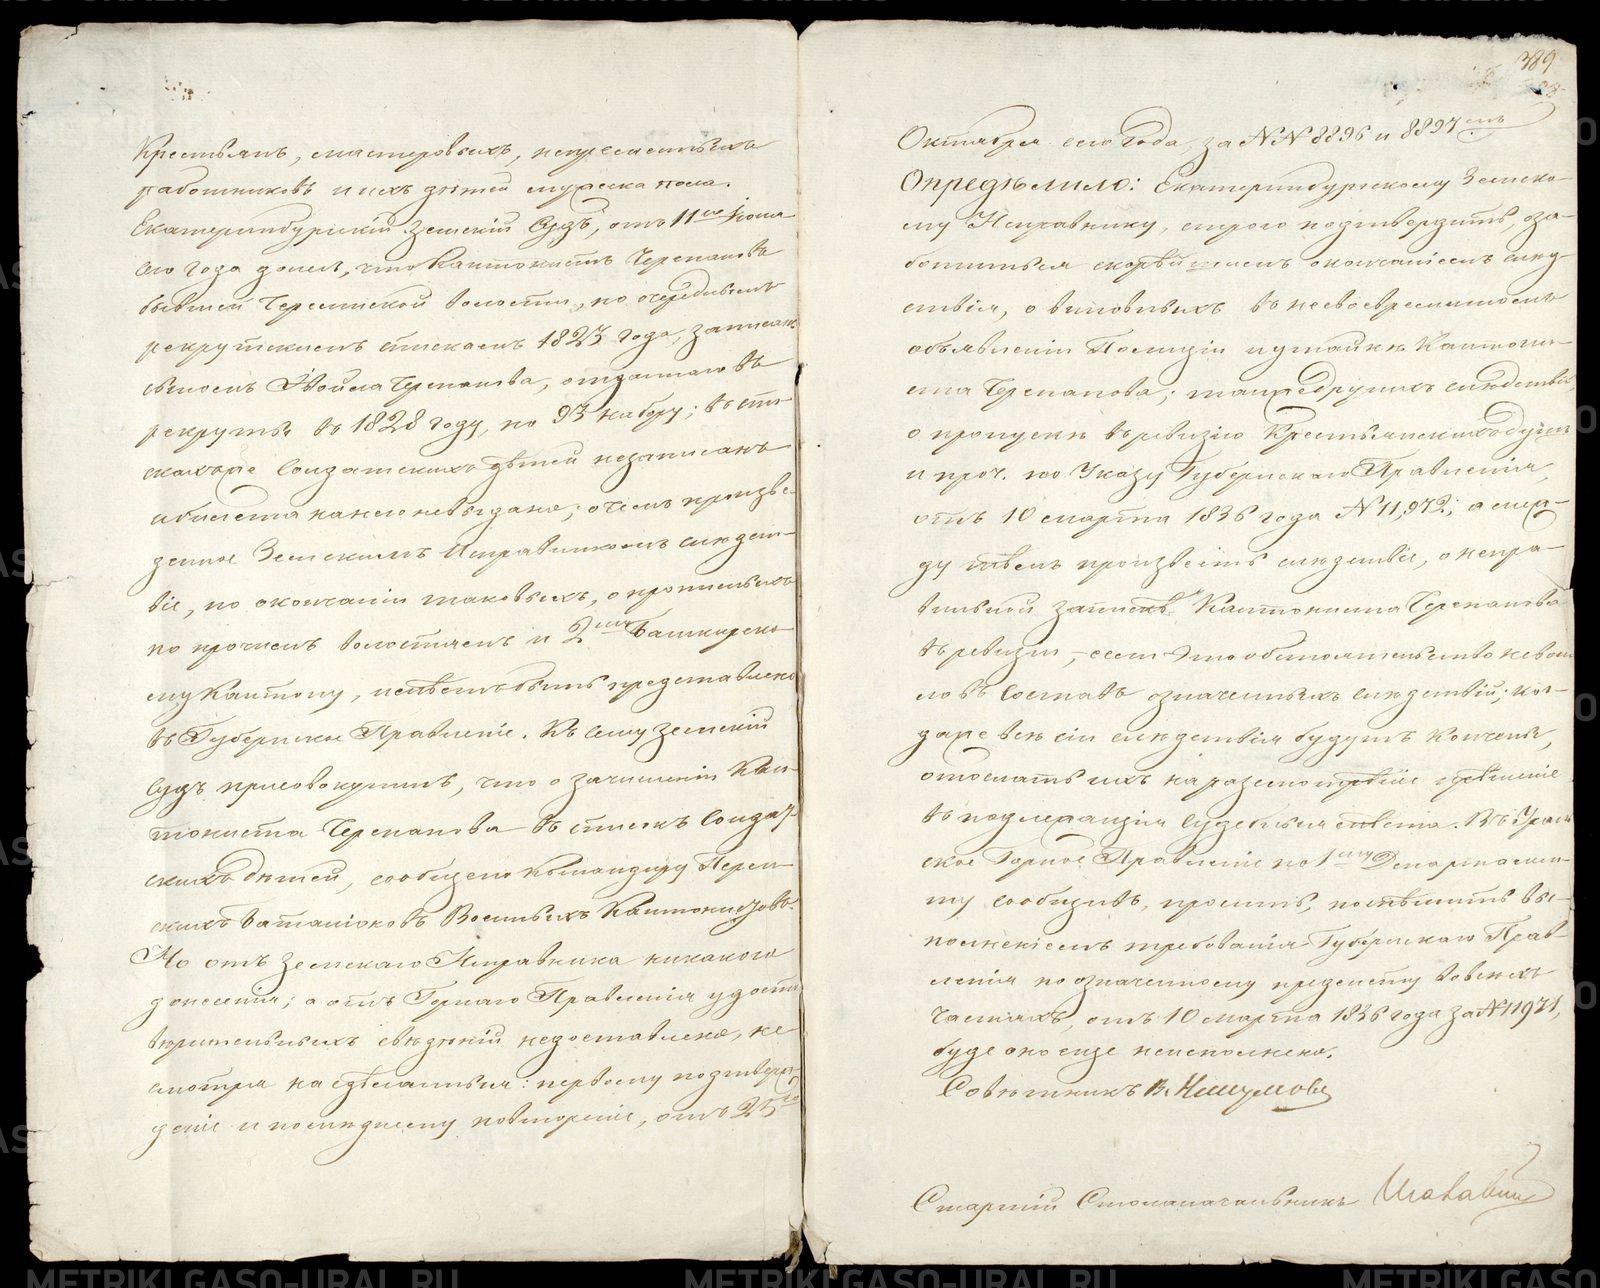 Крестьянъ, мастеровыхъ, непременныхъ
работниковъ и ихъ дѣтей мужеска пола.
Екатеринбургскій Земскій Судъ, отъ 11го Іюля
сего года донесъ, что Кантонистъ Черепановъ
бывшей волости, по очереднымъ
рекрутскимъ спискамъ 1823 года, записанъ
сыномъ Черепанова, отданнаго въ
рекруты въ 1828 году, по 93 набору; въ спи-
скахъ же Солдатскихъ дѣтей незаписанъ
и билета на него невыдано; о чемъ произве-
денное Земскимъ Исправникомъ слѣдст-
віе, по окончаніи таковыхъ, о прописныхъ
по прочимъ волостямъ и 2му Башкирско-
му Кантону, имѣетъ быть представлено
въ Губернское Правленіе. Къ сему Земскій
Судъ присовокупилъ, что о зачисленіи Кан-
тониста Черепанова въ списокъ Солдат-
скихъ дѣтей, сообщено Командиру Перм-
скихъ баталіоновъ Военныхъ Кантонистовъ.
Но отъ Земскаго Исправника никакого
донесенія; а отъ Горнаго Правленія удосто-
вѣрительныхъ свѣдѣній недоставлено, не
смотря на сдѣланныя: первому подтверж-
деніе и послѣднему повтореніе, отъ 25го
389
Октября сего года за NN 8896 и 8897мъ
Опредѣлило: Екатеринбургскому Земско-
му Исправнику, строго подтвердить, оза-
ботиться скорѣйшимъ окончаніемъ слѣд-
ствія, о виновныхъ въ несвоевременномъ
объявленіи Полиціи и утайкѣ Кантони-
ста Черепанова; также другихъ слѣдствій
о пропускѣ въ ревизію Крестьянскихъ душъ
и проч. по Указу Губернскаго Правленія,
отъ 10 марта 1836 года N 11,972; а меж-
ду тѣмъ произвесть слѣдствіе, о непра-
вильной запискѣ Кантониста Черепанова
въ ревизіи, если это обстоятельство невош-
ло въ составъ означенныхъ слѣдствій; ког-
да же всѣ сіи слѣдствія будутъ кончены,
отослать ихъ на разсмотрѣніе и рѣшеніе
въ подлежащія Судебныя мѣста. Въ Ураль-
ское Горное Правленіе по 1му Департамен-
ту сообщивъ, просить, поспѣшить вы-
полненіемъ требованія Губернскаго Прав-
ленія по означенному предмету во всѣхъ
частяхъ, отъ 10 марта 1836 года за N 11971,
буде оно еще неисполнено.
Совѣтникъ В.
Старшій Столоначальникъ
METRIKI.GASO-URAL.RU